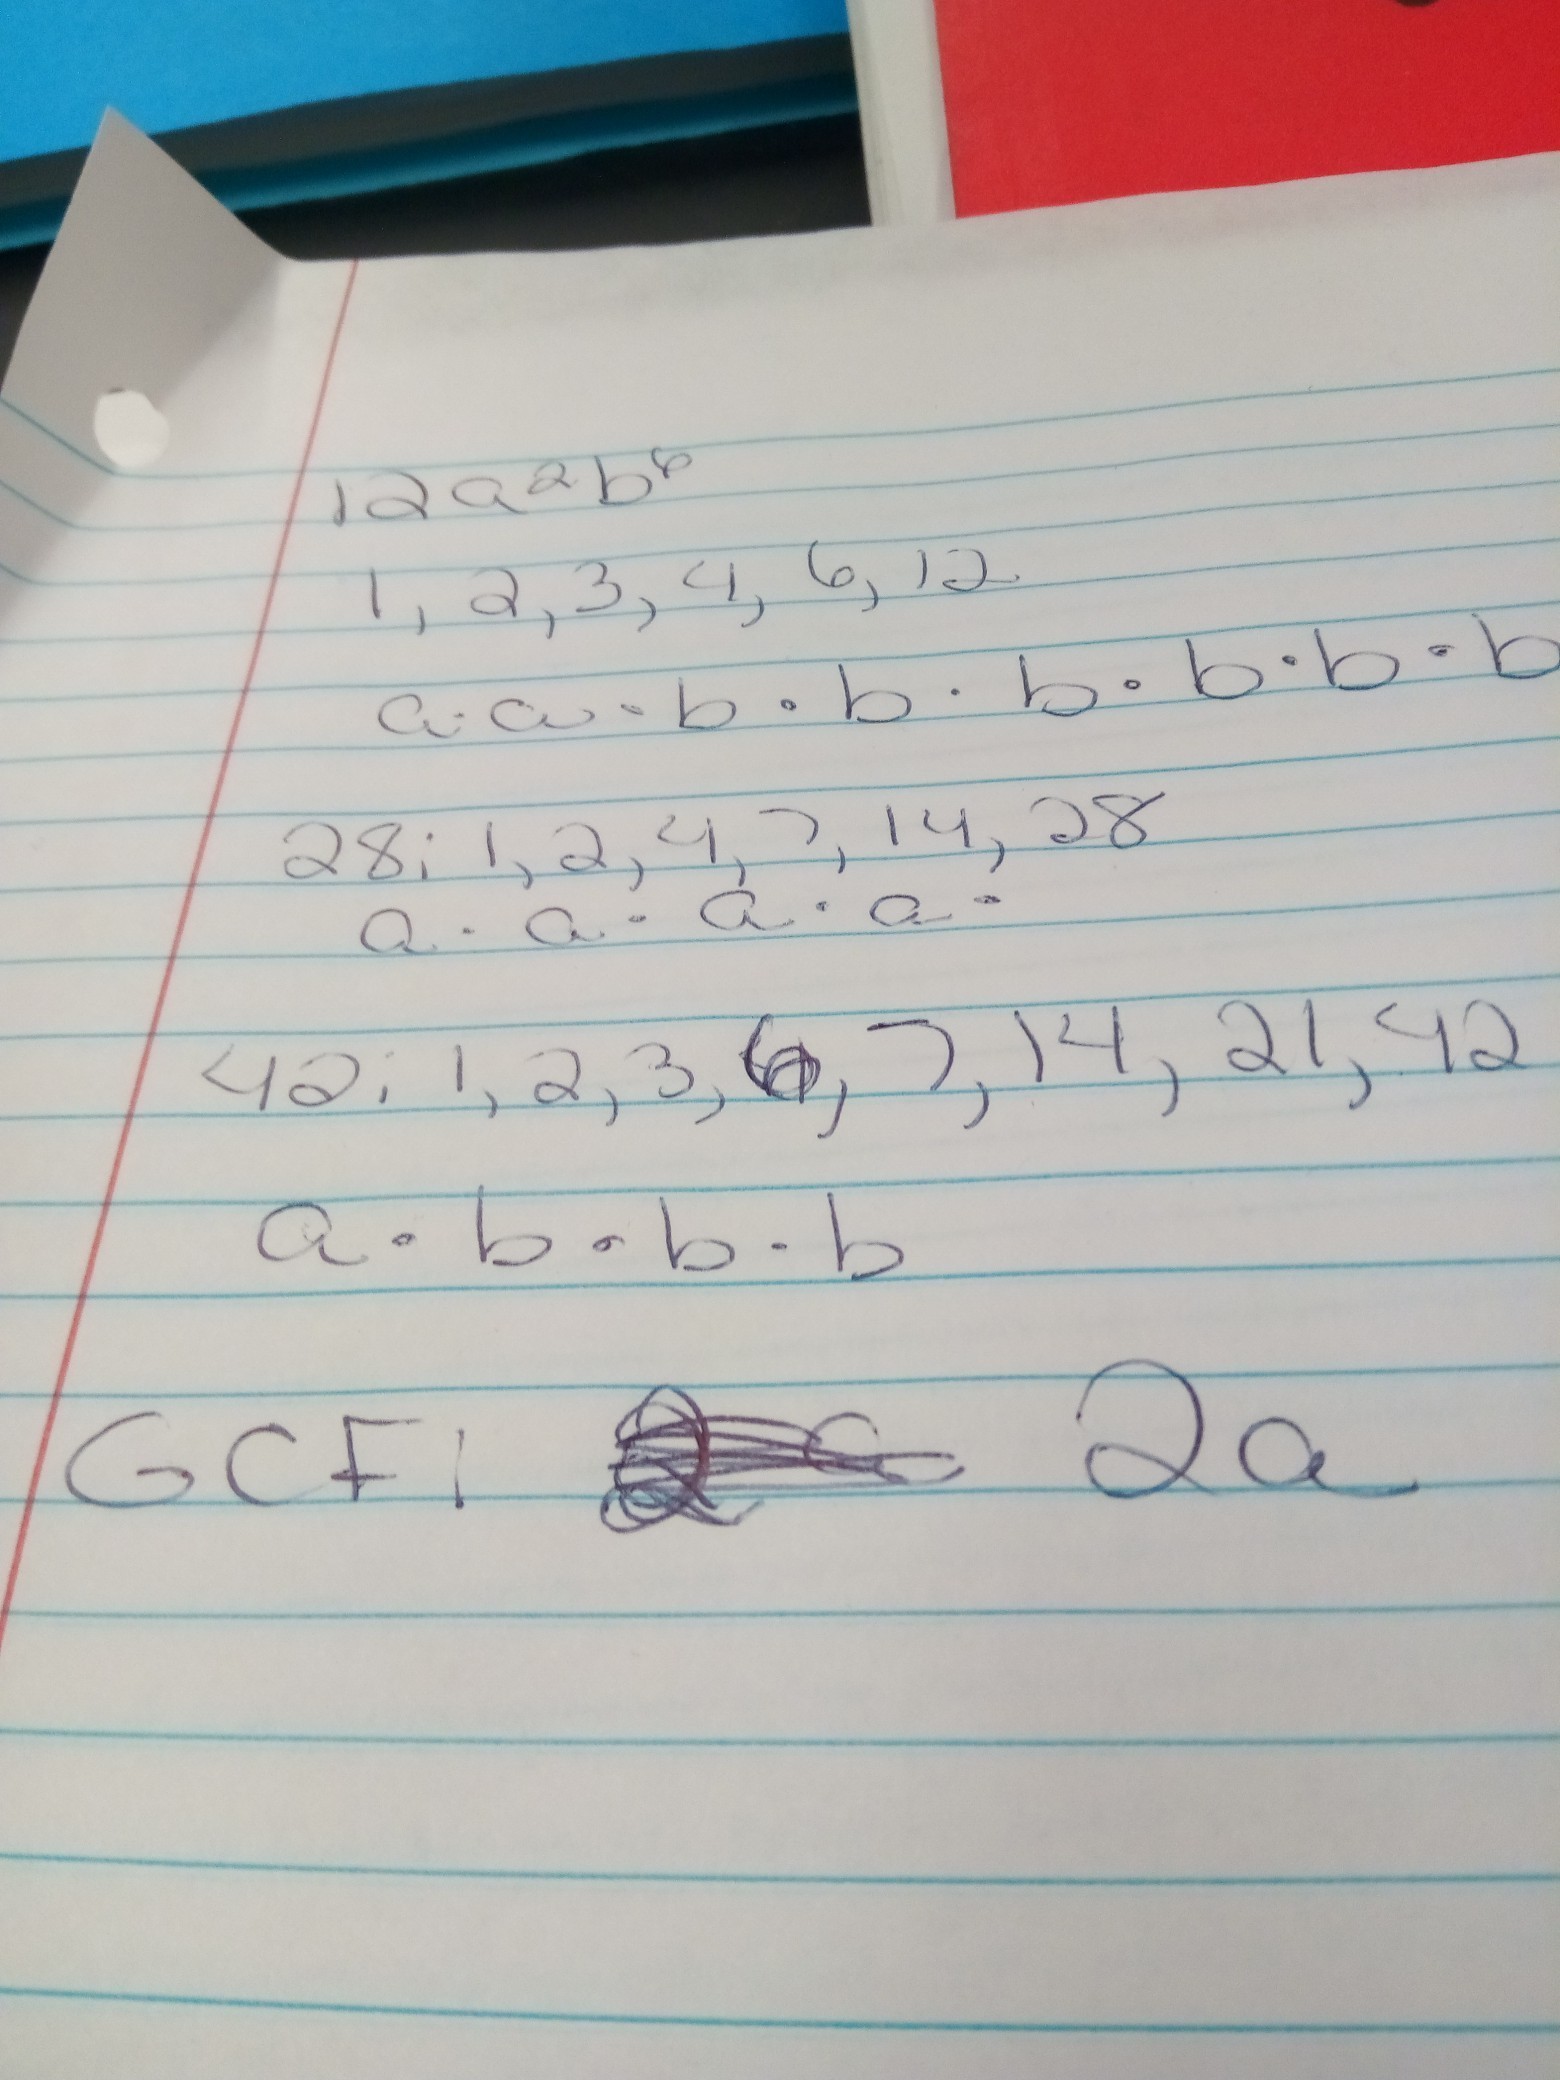 12a²b⁶
1, 2, 3, 4, 6, 12
a·a·b·b·b·b·b·b
28: 1, 2, 4, 7, 14, 28
a·a·a·a·
42: 1, 2, 3, 6, 7, 14, 21, 42
a·b·b·b
GCF: 2a